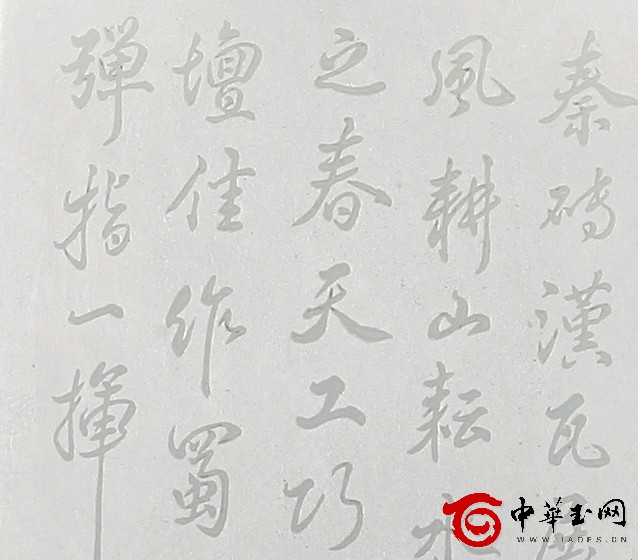 秦磚漢瓦
風耕山耘水
之春天工巧
壇佳作蜀
彈指一揮
中華玉网
WWW.JADES.CN